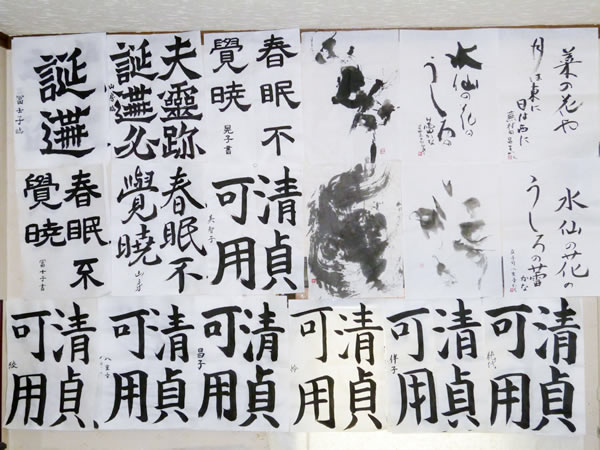 誕遘
冨士子臨
夫靈跡
誕遘必
春眠不
覺曉
晃子書
水仙の花の
うしろの
菜の花や
月は東に
日は西に
春眠不
覺曉
冨士子書
春眠不
覺曉
清貞
可用
美智子
水仙の花の
うしろの蕾
かな
清貞
可用
清貞
可用
八重子
清貞
可用
昌子
清貞
可用
玲
清貞
可用
律子
清貞
可用